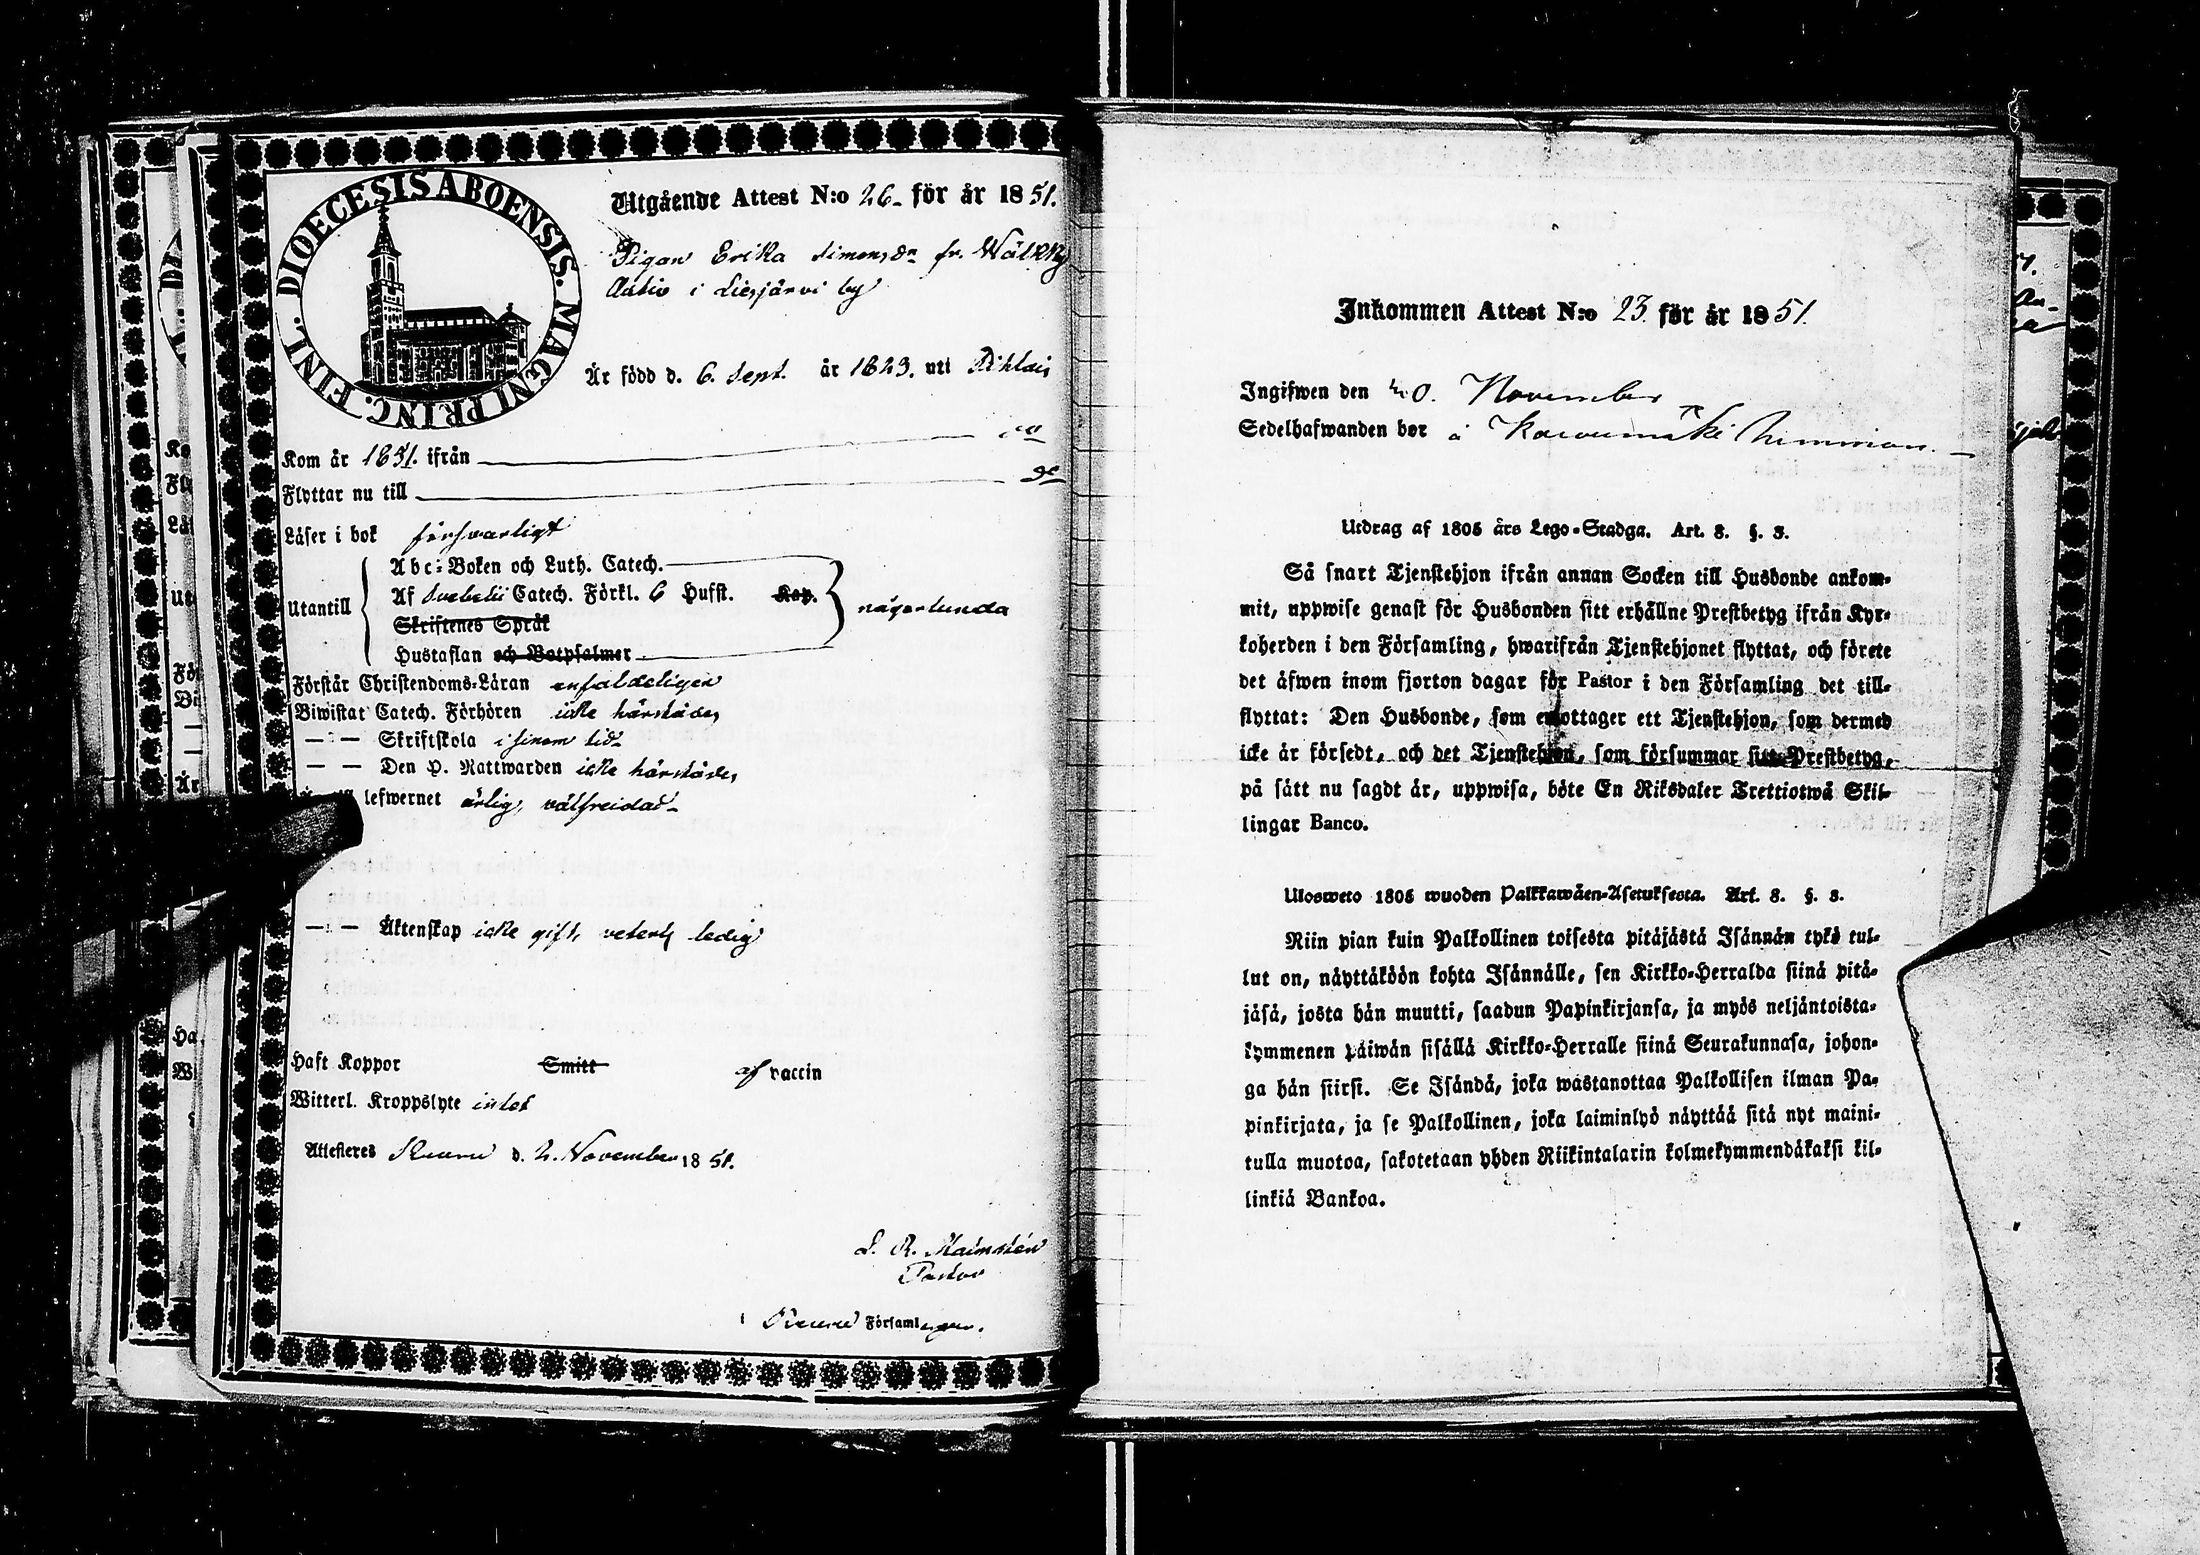 DIOECESIS ABOENSIS. MAGNI PRINC. FINL.
Utgående Attest N:o 26 för år 1851.
Pigan Erika Simonsdr fr. Wälkky
i Liesjärvi by
Är född d. 6. Sept. år 1823. uti Pihlais
Kom år 1851. ifrån
Flyttar nu till
Läser i bok försvarligt
Utantill
Abc-Boken och Luth. Catech.
Af Svebelii Catech. Förkl. 6 Hufst. Kap.
Skriftenes Språk
Hustaflan och Botpsalmer
någorlunda
Förstår Christendoms-Läran enfaldeligen
Biwistat Catech. Förhören icke härstädes
— " — Skriftskola i sinom tid
— — Den H. Nattwarden icke härstädes
lefwernet ärlig, välfreidad
— " — Äktenskap icke gift, veterl. ledig
Haft Koppor Smitt af vaccin
Witterl. Kroppslyte intet
Attesteres Keuru d. 2. November 1851.
L. R. Malmstén
Pastor
i Keuru Församlingen.
Inkommen Attest N:o 23. för år 1851.
Ingifwen den 20. November
Sedelhafwanden bor å
Utdrag af 1805 års Lego-Stadga. Art. 8. §. 3.
Så snart Tjenstehjon ifrån annan Socken till Husbonde ankom-
mit, uppwise genast för Husbonden sitt erhållne Prestbetyg ifrån Kyr-
koherden i den Församling, hwarifrån Tjenstehjonet flyttat, och förete
det äfwen inom fjorton dagar för Pastor i den Församling det till-
flyttat: Den Husbonde, som emottager ett Tjenstehjon, som dermed
icke är försedt, och det Tjenstehjon, som försummar sitt Prestbetyg,
på sätt nu sagdt är, uppwisa, böte En Riksdaler Trettiotwå Skil-
lingar Banco.
Ulosweto 1805 wuoden Palkkawäen-Asetuksesta. Art. 8. §. 3.
Niin pian kuin Palkollinen toisesta pitäjästä Isännän tykö tul-
lut on, näyttäköön kohta Isännälle, sen Kirkko-Herralda siinä pitä-
jäsä, josta hän muutti, saadun Papinkirjansa, ja myös neljäntoista-
kymmenen päiwän sisällä Kirkko-Herralle siinä Seurakunnasa, johon-
ga hän siirsi. Se Isändä, joka wastanottaa Palkollisen ilman Pa-
pinkirjata, ja se Palkollinen, joka laiminlyö näyttää sitä nyt maini-
tulla muotoa, sakotetaan yhden Riikintalarin kolmekymmendäkaksi kil-
linkiä Bankoa.